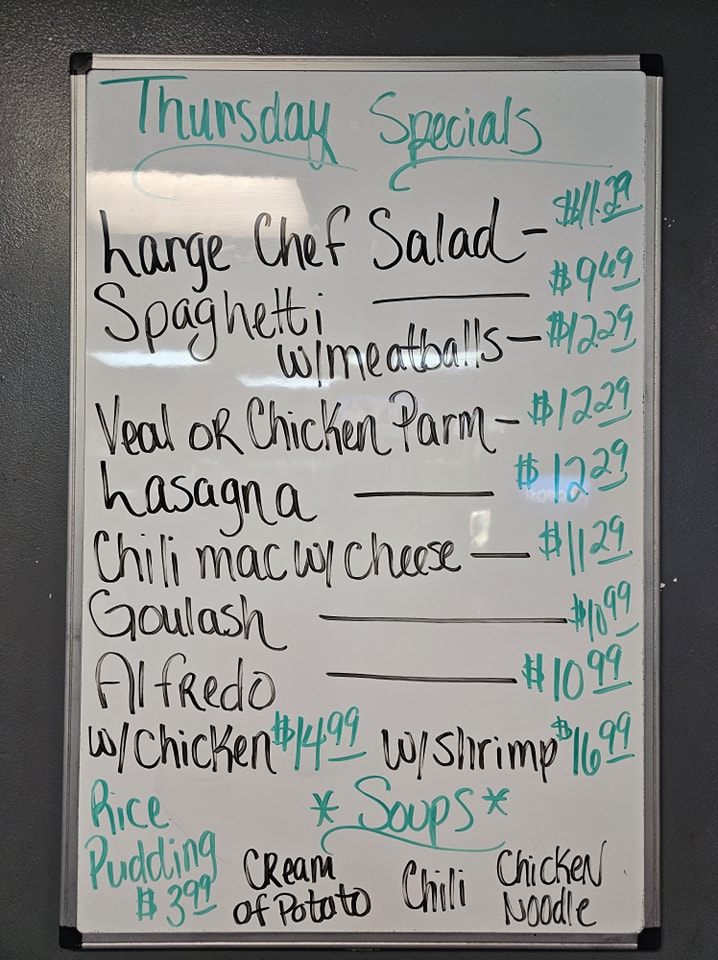 Thursday Specials
Large Chef Salad - $11.29
Spaghetti — $9.49
w/meatballs - $12.29
Veal or Chicken Parm - $12.29
Lasagna — $12.29
Chili mac w/ cheese — $11.29
Goulash — $10.99
Alfredo — $10.99
w/chicken $14.99 w/shrimp $16.99
Rice Pudding $3.99
*Soups*
Cream of Potato
Chili
Chicken Noodle